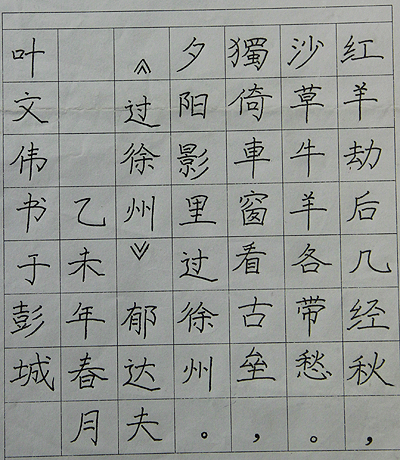 红羊劫后几经秋，
沙草牛羊各带愁。
獨倚車窗看古垒，
夕阳影里过徐州。
《过徐州》郁达夫
乙未年春月
叶文伟书于彭城